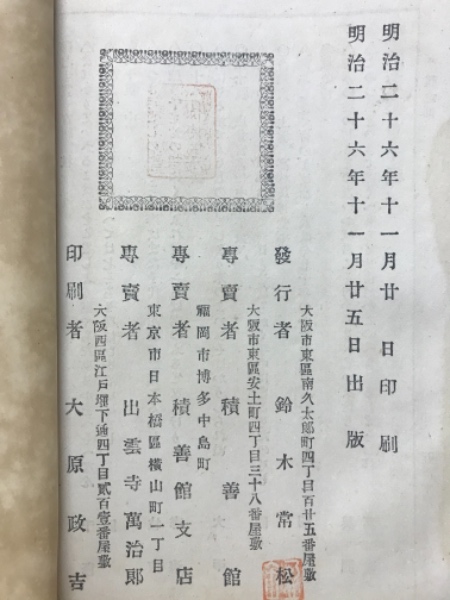 明治二十六年十一月廿日印刷
明治二十六年十一月廿五日出版
大阪市東區南久太郎町四丁目百廿五番屋敷
發行者 鈴木常松
大阪市東區安土町四丁目三十八番屋敷
專賣者 積善館
福岡市博多中島町
專賣者 積善館支店
東京市日本橋區橫山町一丁目
專賣者 出雲寺萬治郎
大阪西區江戸堀下通四丁目貳百壹番屋敷
印刷者 大原政吉